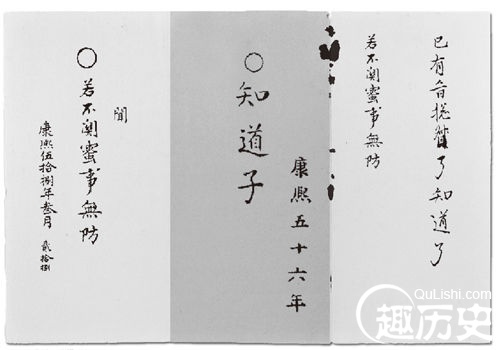 已有旨 了知道了
若不関蜜事無防
康熙五十六年
○知道子
聞
○若不関蜜事無防
康熙伍拾捌年叁月 貳拾捌
QuLishi.com
趣历史